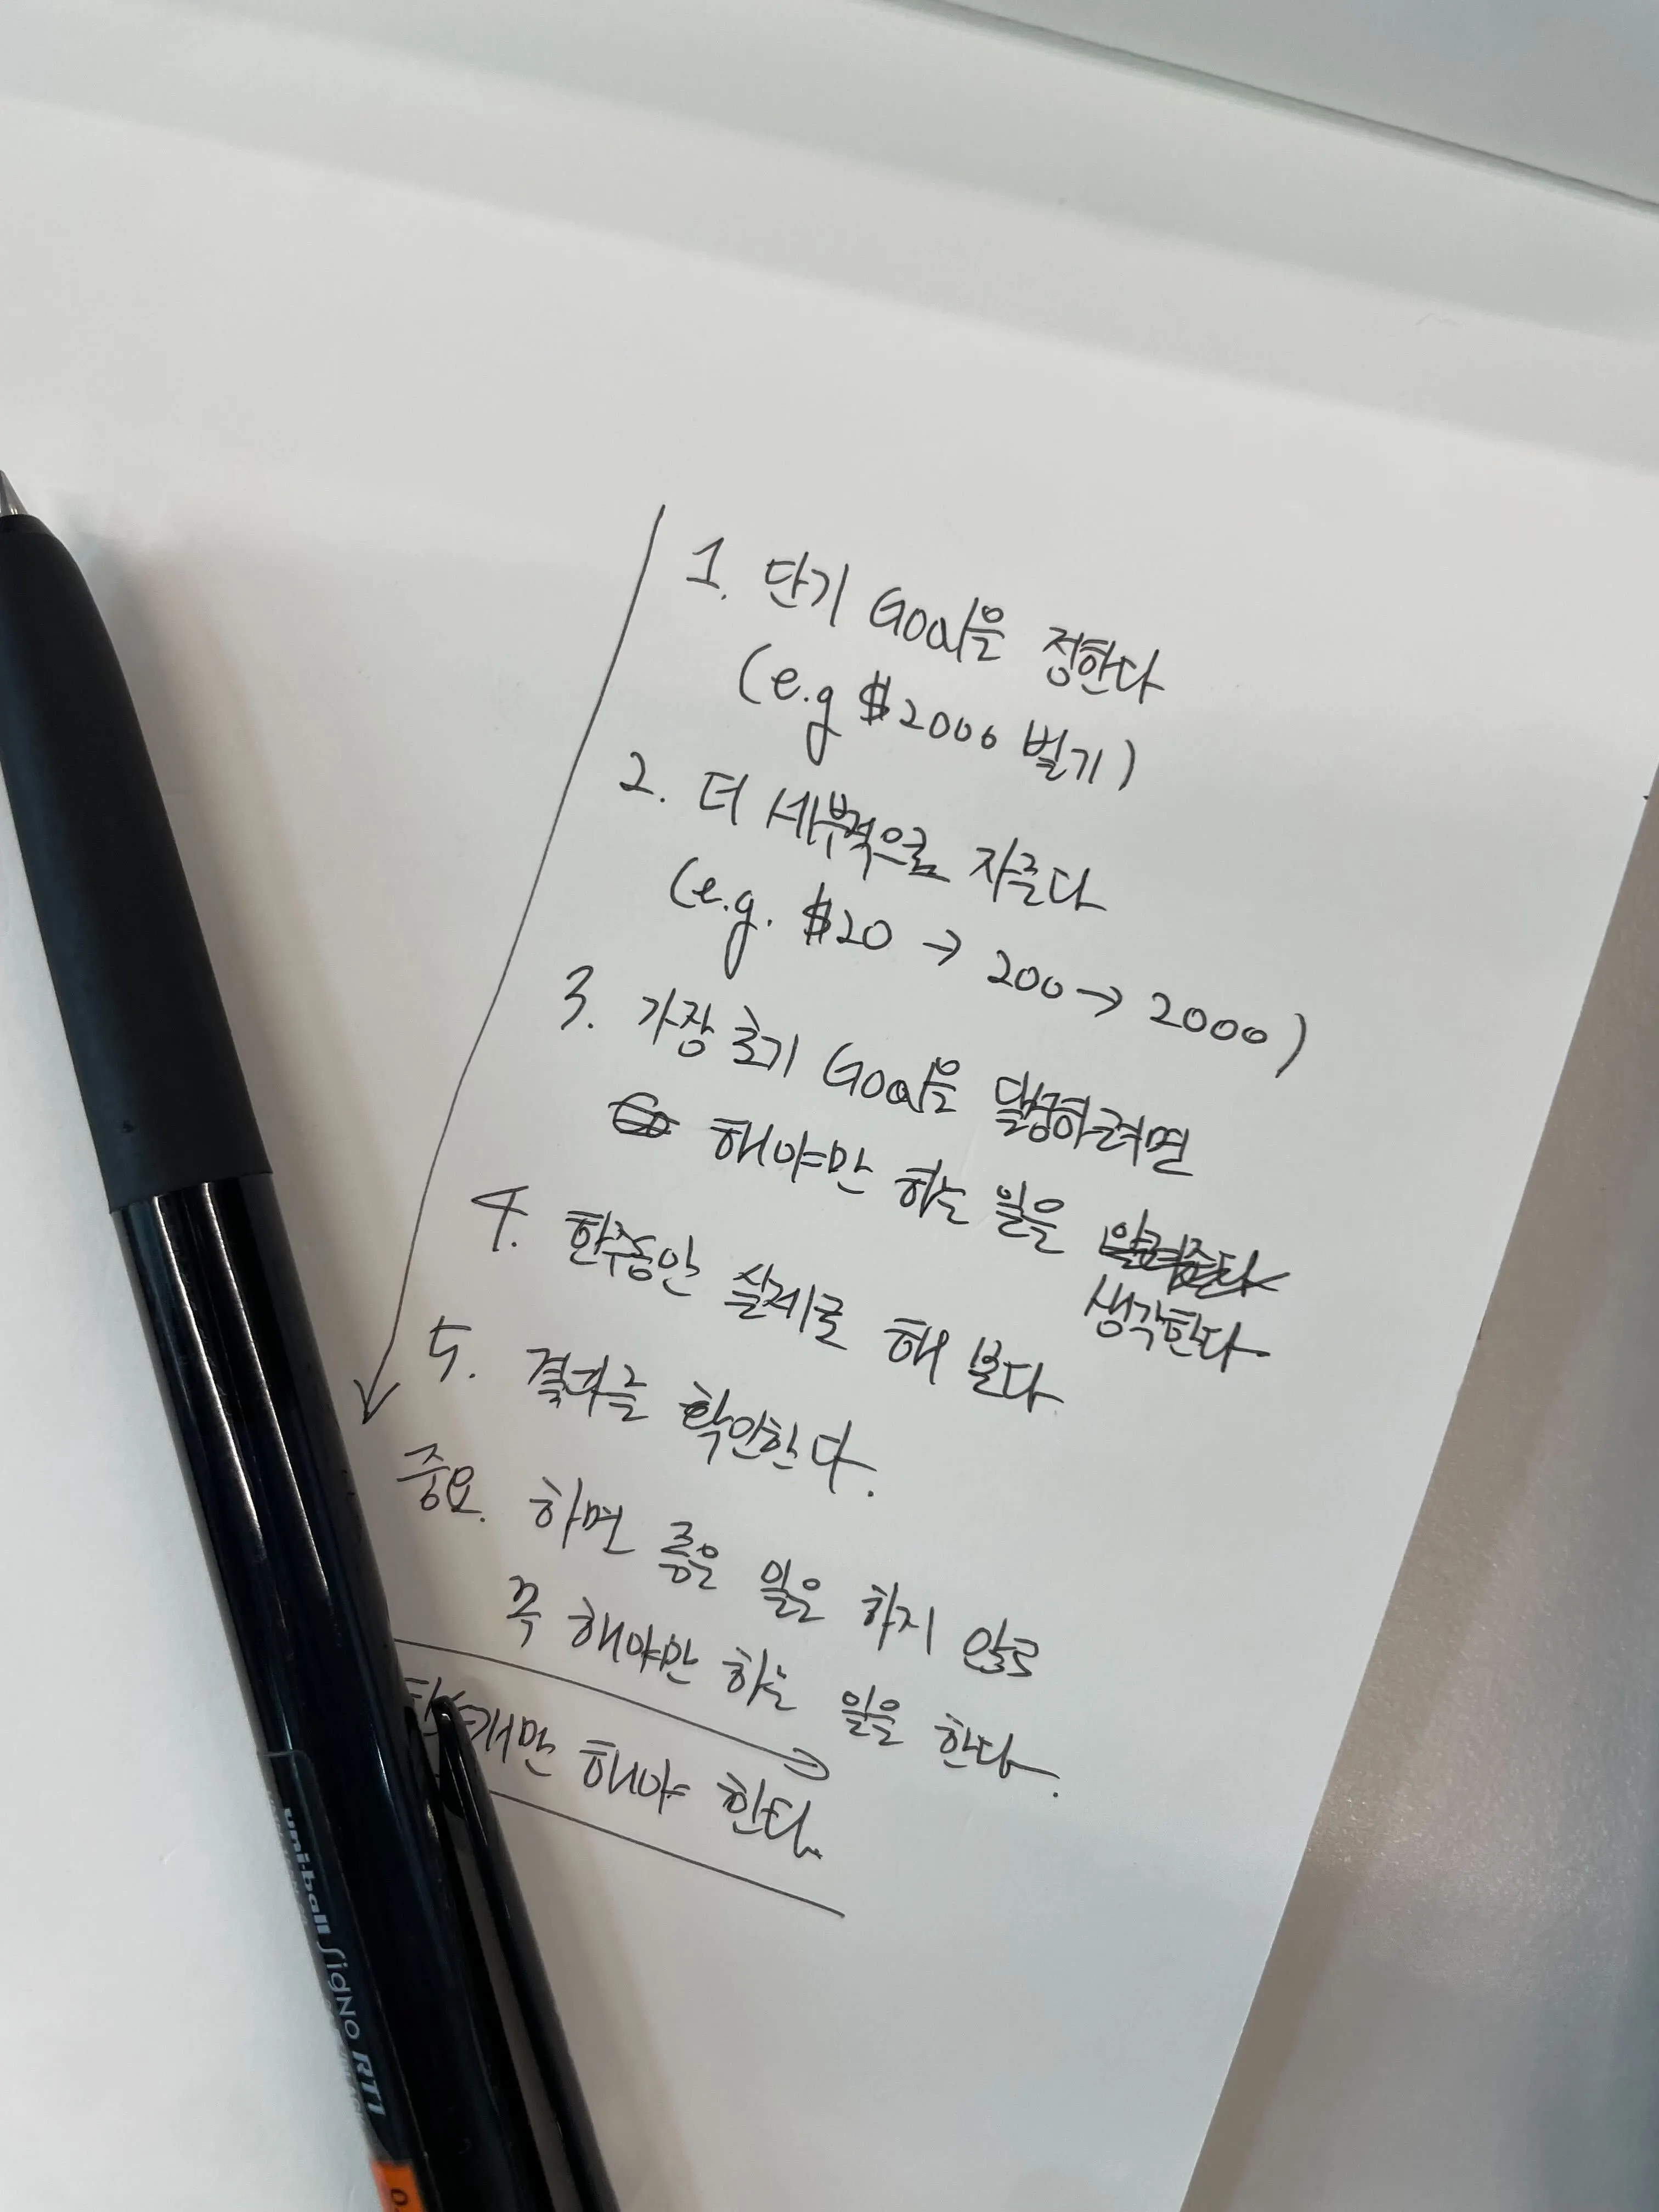 1. 단기 Goal을 정한다
(e.g $2000 벌기)
2. 더 세부적으로 자른다
(e.g. $20 → 200 → 2000)
3. 가장 초기 Goal을 달성하려면
해야만 하는 일을
생각한다
4. 한주동안 실제로 해 본다
5. 결과를 확인한다.
중요. 하면 좋은 일은 하지 않고
꼭 해야만 하는 일을 한다.
해야 한다.
uni-ball Signo RT1